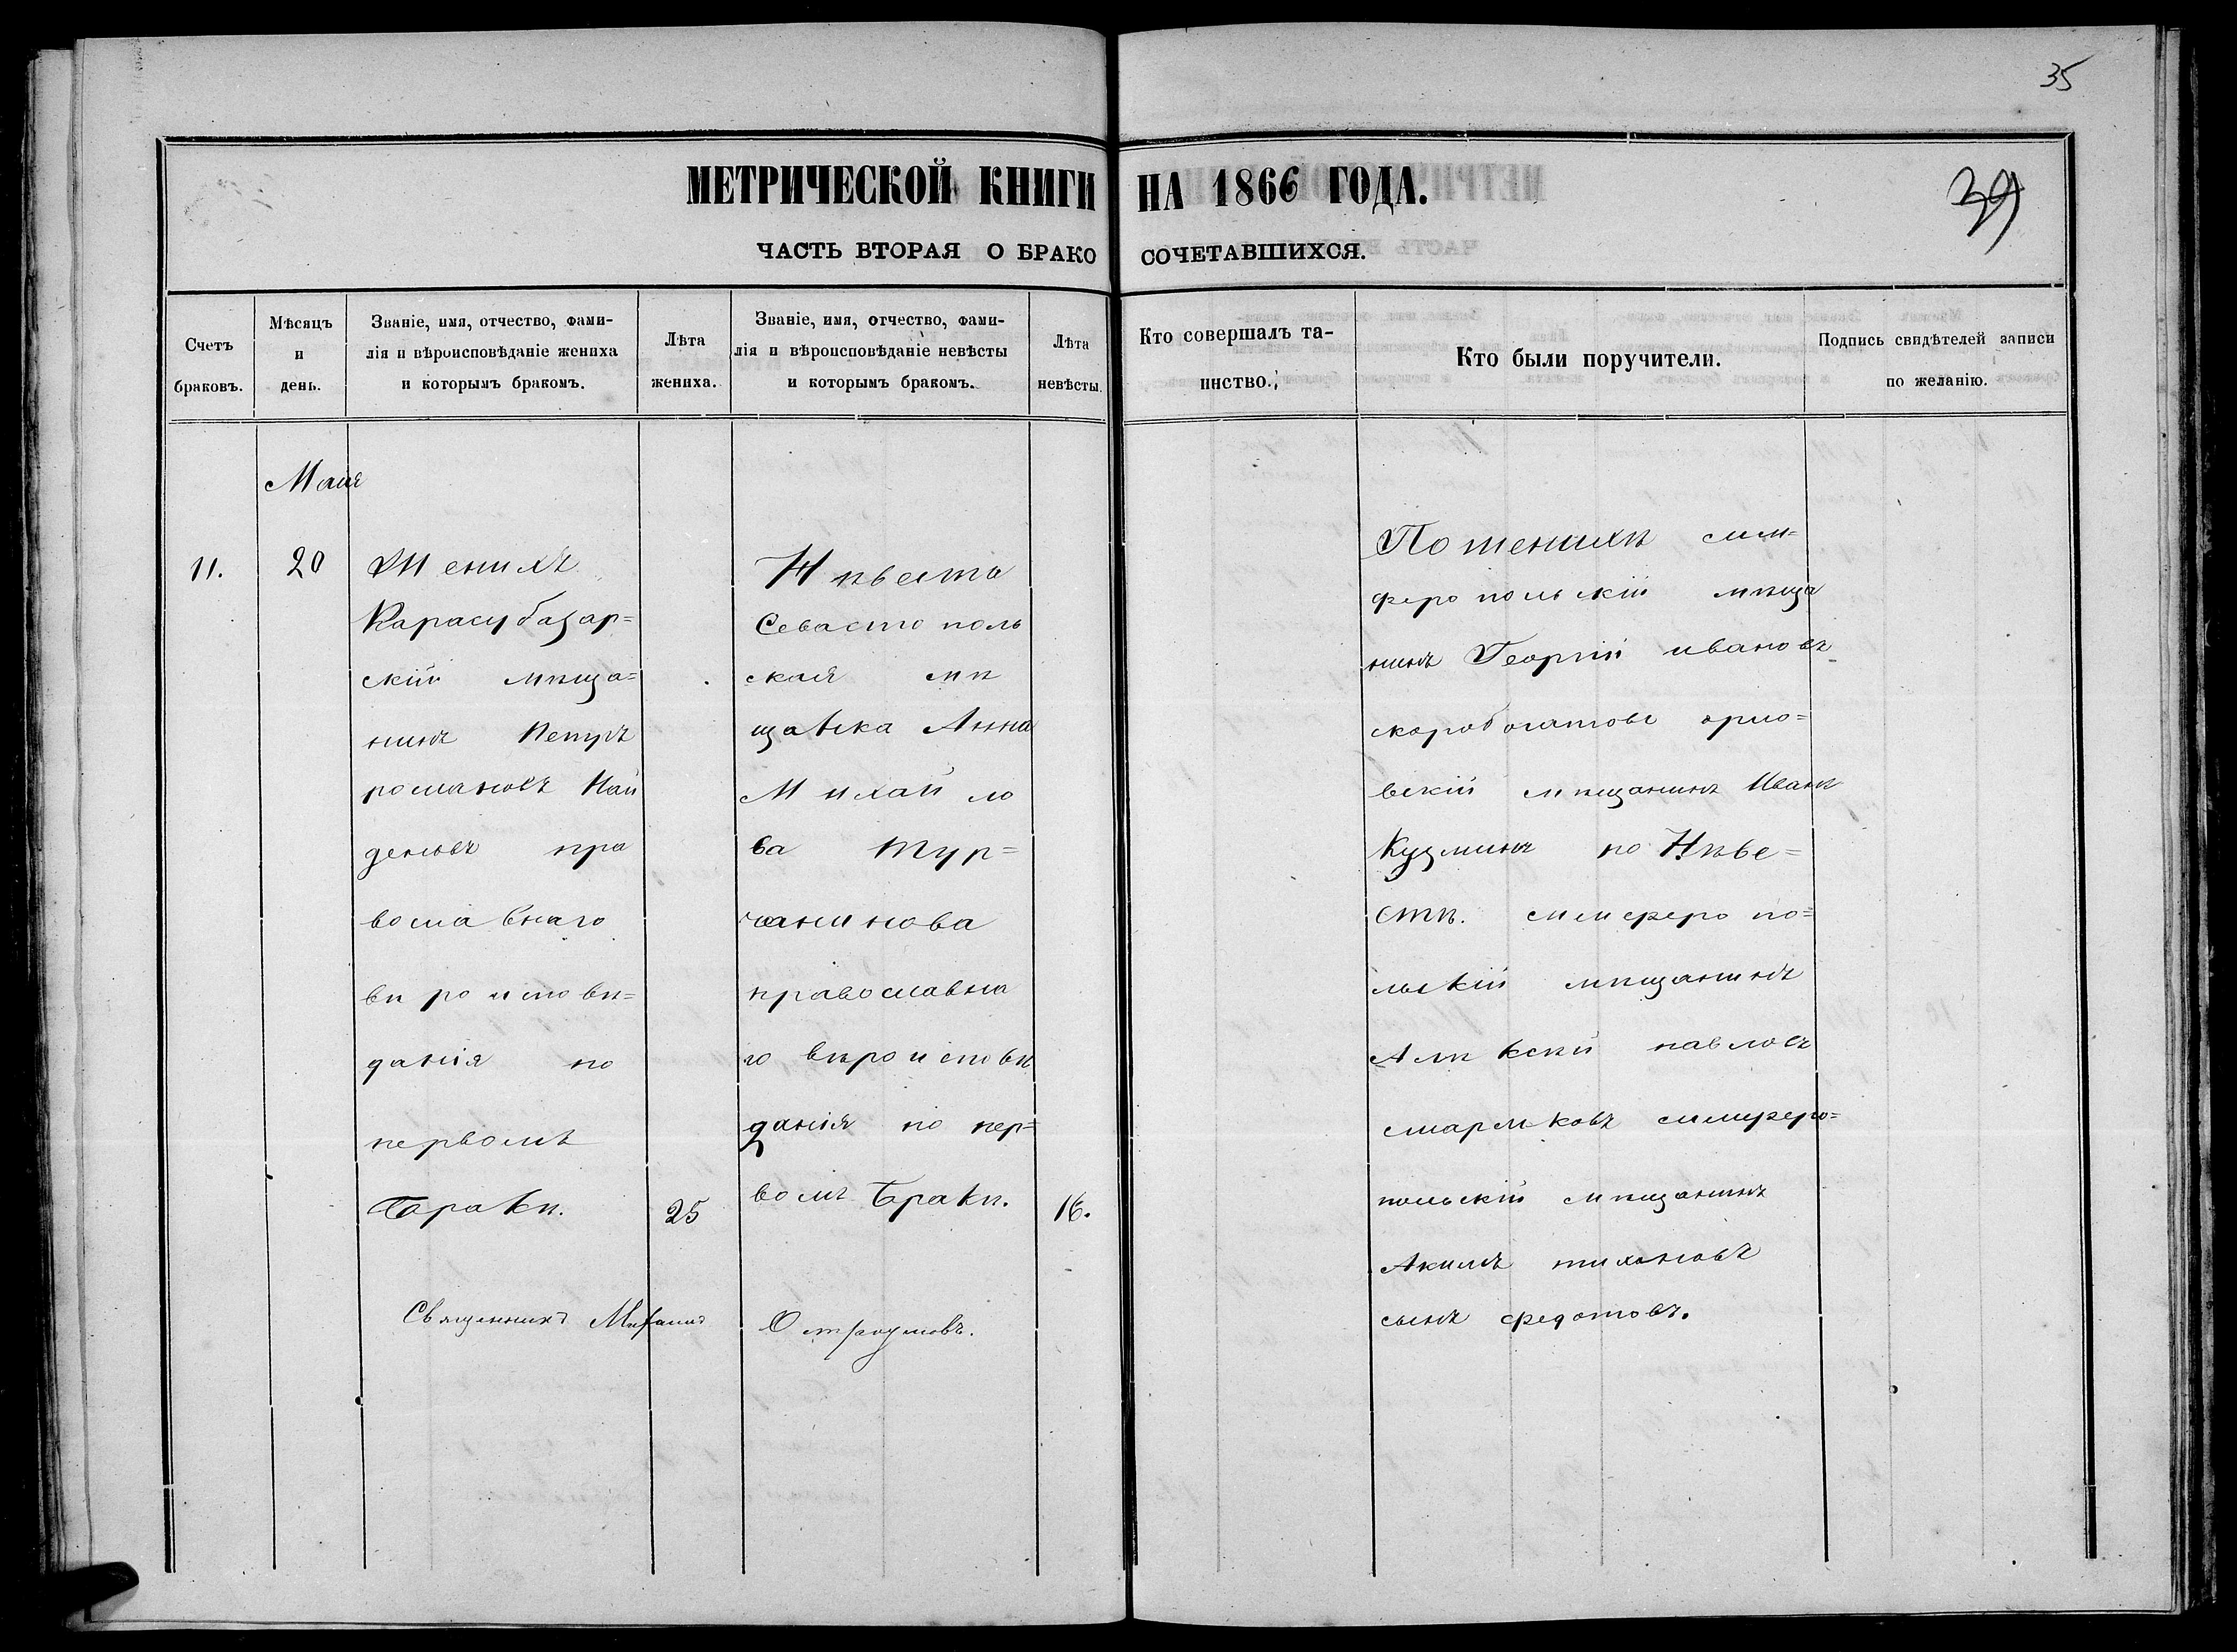 35
39
МЕТРИЧЕСКОЙ КНИГИ НА 1866 ГОДА.
ЧАСТЬ ВТОРАЯ О БРАКОСОЧЕТАВШИХСЯ.
Счетъ браковъ.
Мѣсяцъ и день.
Званіе, имя, отчество, фами-
лія и вѣроисповѣданіе жениха
и которымъ бракомъ.
Лѣта
жениха.
Званіе, имя, отчество, фами-
лія и вѣроисповѣданіе невѣсты
и которымъ бракомъ.
Лѣта
невѣсты.
Кто совершалъ та-
инство.
Кто были поручители.
Подпись свидѣтелей записи
по желанію.
Маія
11.
20
Женихъ
Карасубазар=
скій мѣща=
нинъ Петръ
романовъ Най
деновъ пра
вославнаго
вѣроисповѣ=
данія по
первомъ
Бракѣ.
25
Нѣвеста
Севастополь
ская мѣ
щанка Анна
Михайло
ва Тур=
чанинова
православна
го вѣроисповѣ
данія по пер=
вомъ Бракѣ.
16.
Священникъ Мифаний
По женихѣ сим=
феропольскій мѣща
нинъ Георгій ивановъ
скоробогатовъ орло=
вскій мѣщанинъ Иванъ
Кузминъ по Нѣве=
стѣ. симферопо=
льскій мѣщанинъ
Алѣксѣй павловъ
симферо=
польскій мѣщанинъ
Акимъ тихоновъ
сынъ федотовъ.